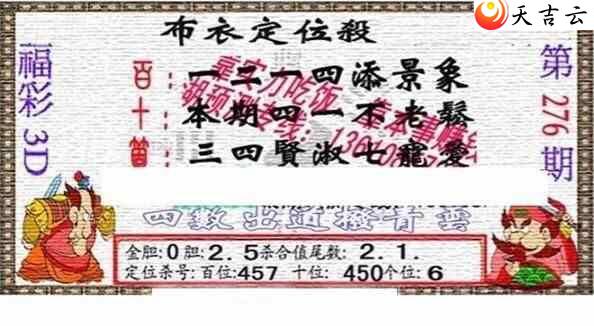 天吉云
布衣定位殺
福彩3D
第276期
百:一二一四添景象
十:本期四一不老鬆
個:三四賢淑七寵愛
四數出遊撥青雲
金胆:0胆:2.5杀合值尾数:2.1.
定位杀号:百位:457 十位:450个位:6